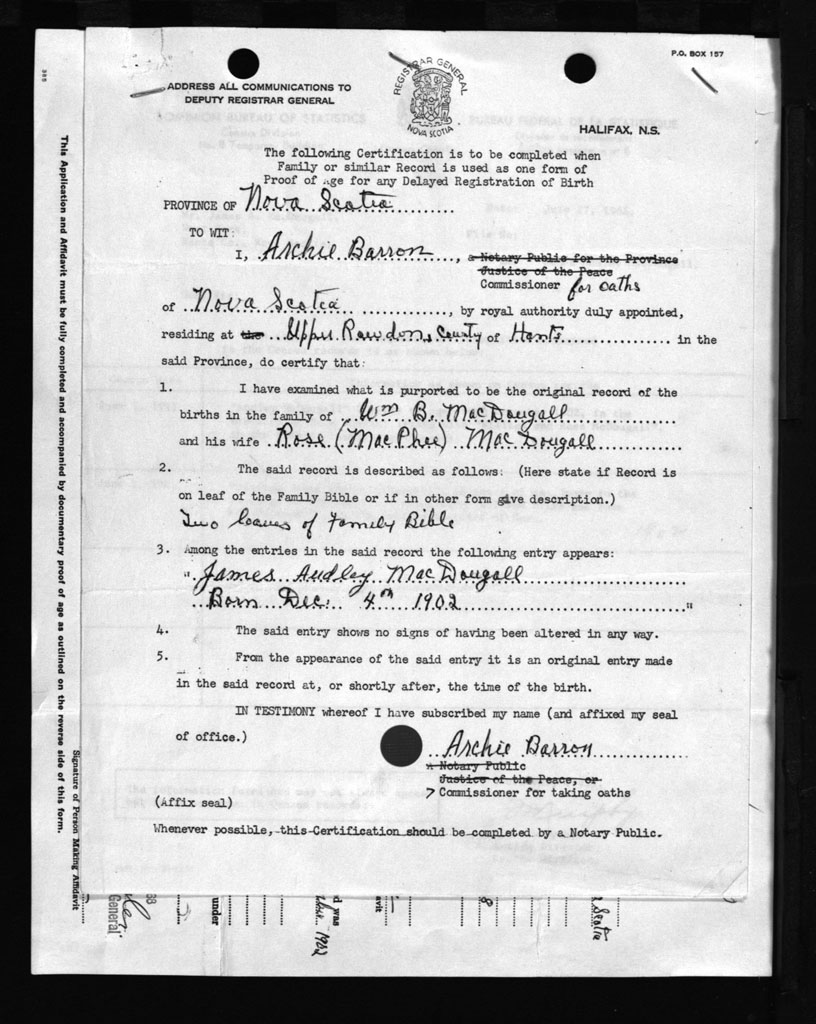 P.O. BOX 157
ADDRESS ALL COMMUNICATIONS TO
DEPUTY REGISTRAR GENERAL
REGISTRAR GENERAL
NOVA SCOTIA
HALIFAX, N.S.
The following Certification is to be completed when
Family or similar Record is used as one form of
Proof of Age for any Delayed Registration of Birth
PROVINCE OF Nova Scotia
TO WIT:
I, Archie Barron, a Notary Public for the Province
Justice of the Peace
Commissioner for oaths
of Nova Scotia, by royal authority duly appointed,
residing at the Upper Rawdon, County of Hants in the
said Province, do certify that:
1. I have examined what is purported to be the original record of the
births in the family of Wm B. MacDougall
and his wife Rose (MacPhee) MacDougall
2. The said record is described as follows: (Here state if Record is
on leaf of the Family Bible or if in other form give description.)
Two leaves of Family Bible
3. Among the entries in the said record the following entry appears:
" James Audley MacDougall
Born Dec. 4th 1902 "
4. The said entry shows no signs of having been altered in any way.
5. From the appearance of the said entry it is an original entry made
in the said record at, or shortly after, the time of the birth.
IN TESTIMONY whereof I have subscribed my name (and affixed my seal
of office.)
Archie Barron
A Notary Public
Justice of the Peace, or
Commissioner for taking oaths
(Affix seal)
Whenever possible, this Certification should be completed by a Notary Public.
This Application and Affidavit must be fully completed and accompanied by documentary proof of age as outlined on the reverse side of this form.
Signature of Person Making Affidavit
General
under
d was
1902
avit
8
Scotia